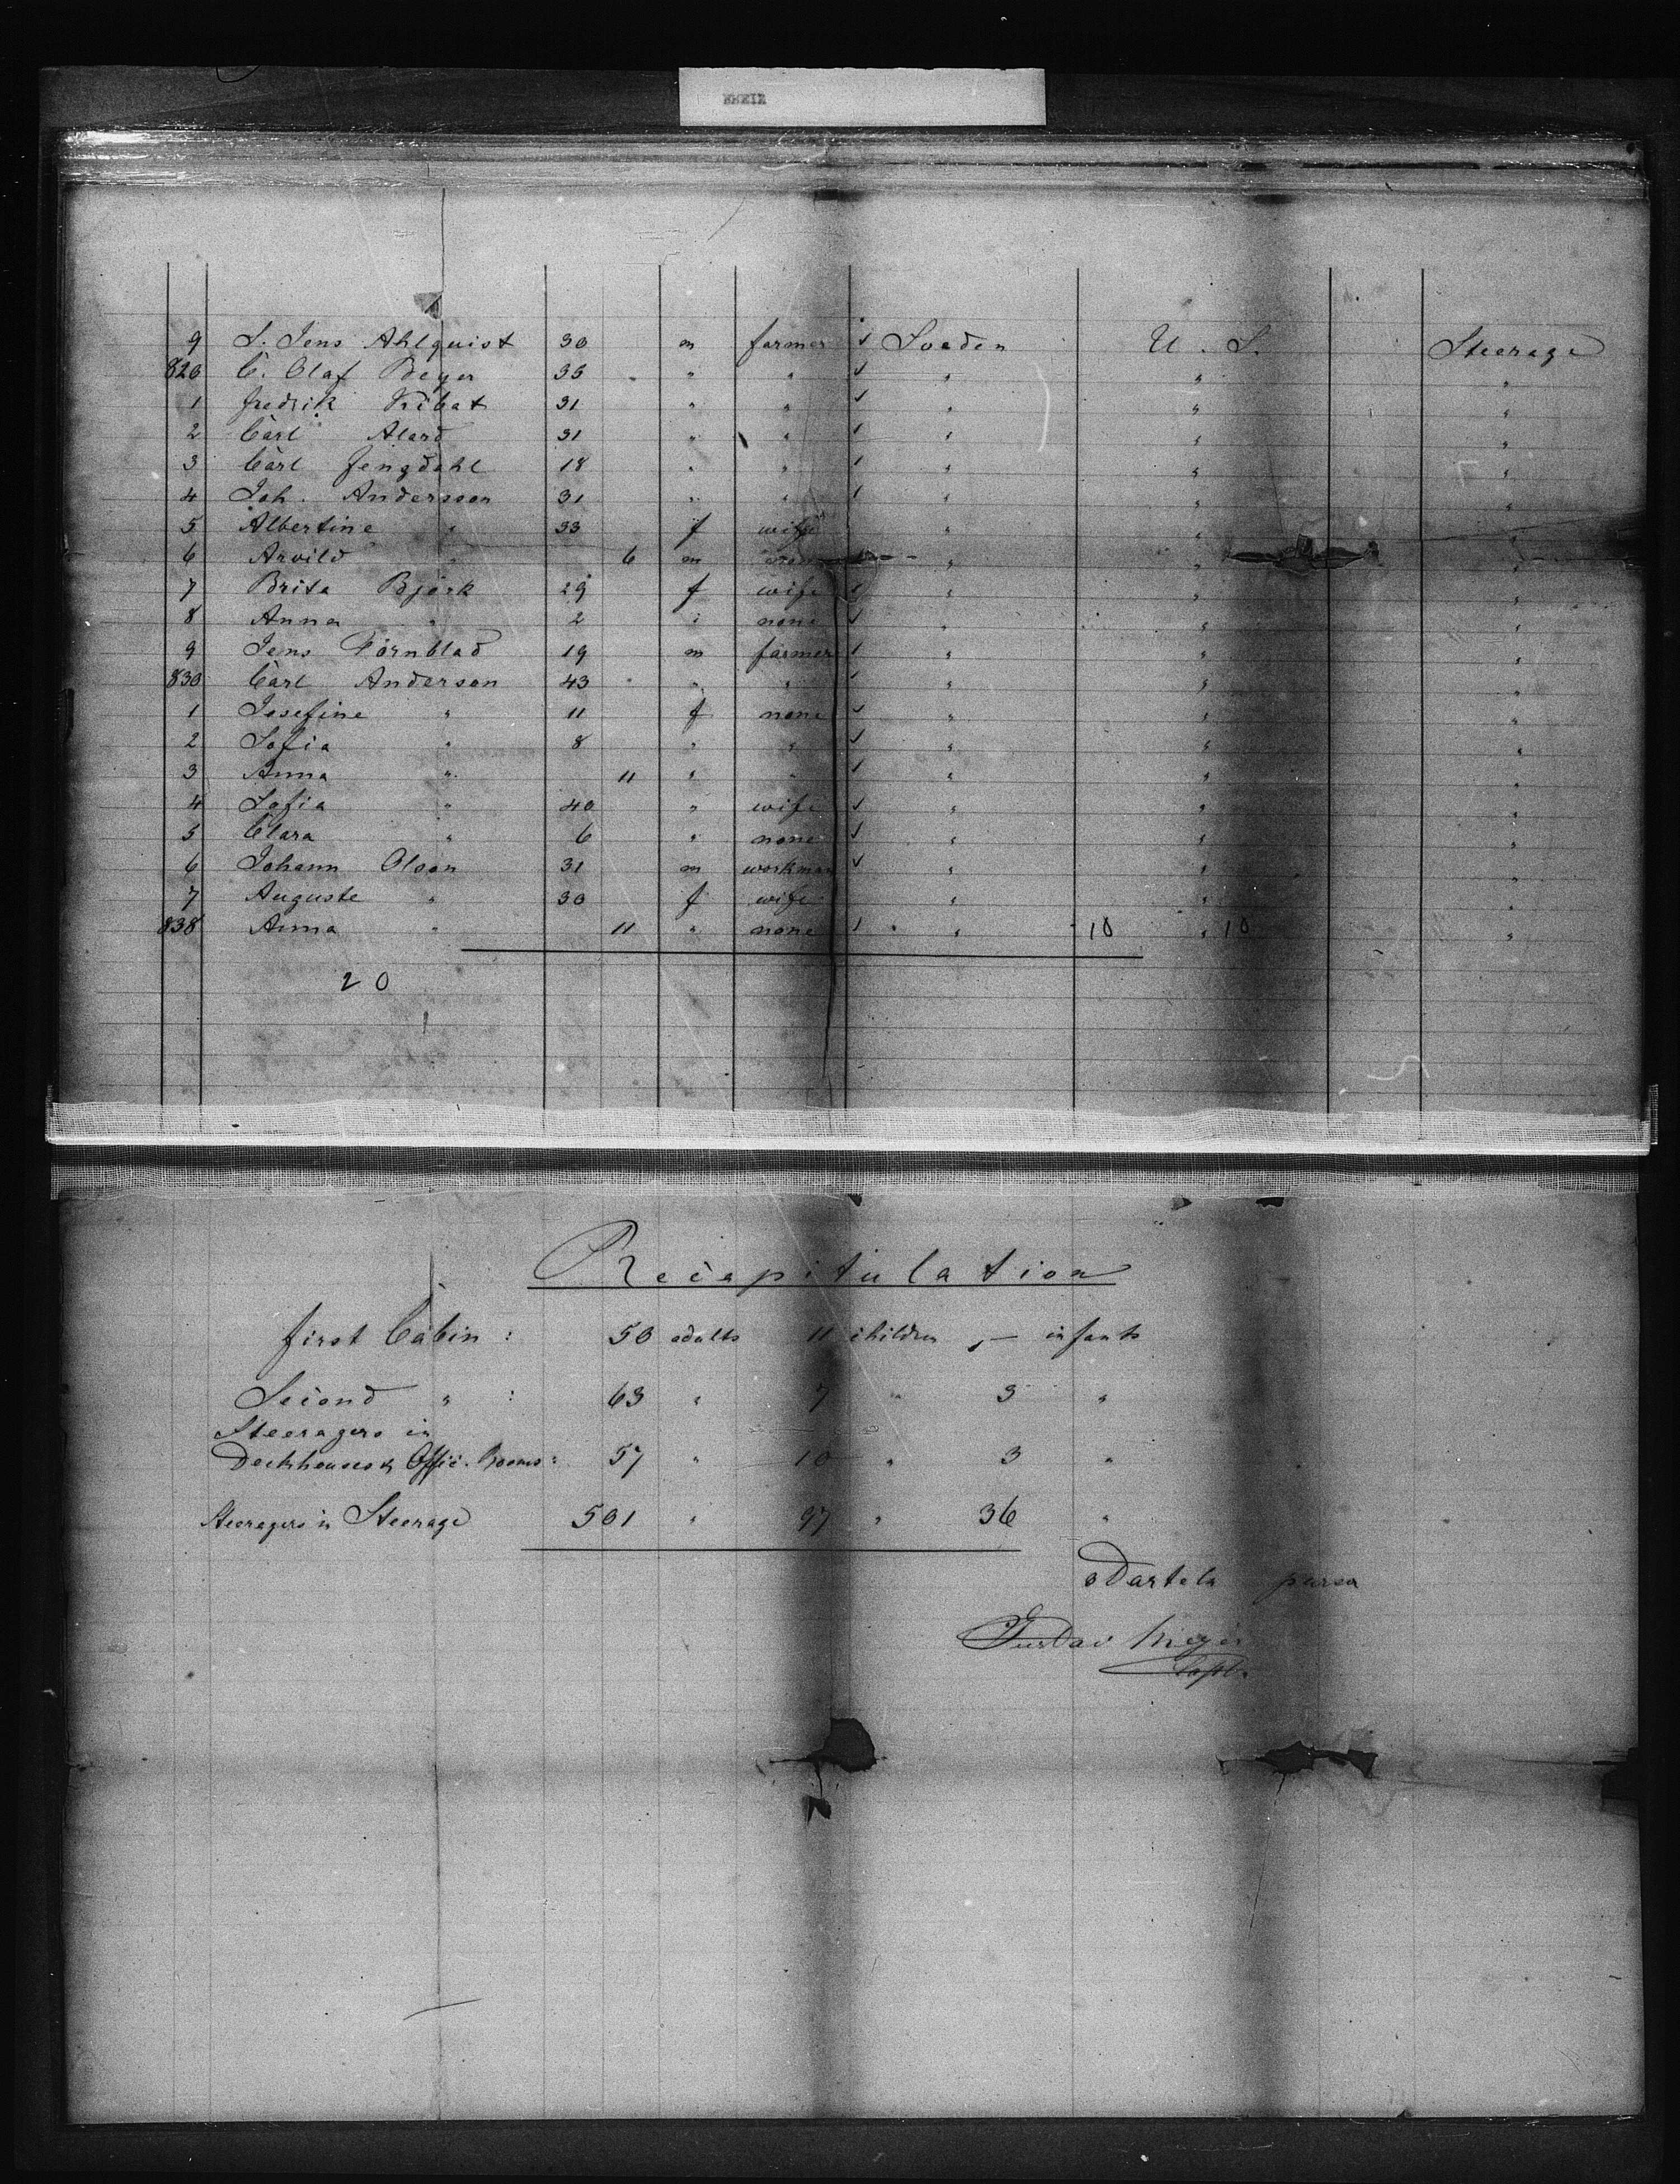 9 S. Jens Ahlquist 30 m farmer ✓ Sveden U. S. Steerage
820 C. Olaf Beyer 35 " " ✓ " " "
1 fredrik Kibat 31 " " ✓ " " "
2 Carl Alard 31 " " ✓ " " "
3 Carl fengdahl 18 " " ✓ " " "
4 Joh. Andersson 31 " " ✓ " " "
5 Albertine " 33 f wife " " "
6 Arvild " 6 m " " "
7 Brita Björk 29 f wife ✓ " " "
8 Anna " 2 " none ✓ " " "
9 Jens Törnblad 19 m farmer ✓ " " "
830 Carl Anderson 43 " " ✓ " " "
1 Josefine " 11 f none ✓ " " "
2 Sofia " 8 " " ✓ " " "
3 Anna " 11 " " ✓ " " "
4 Sofia " 40 " wife ✓ " " "
5 Clara " 6 " none ✓ " " "
6 Johann Olson 31 m workman ✓ " " "
7 Auguste " 30 f wife " " "
838 Anna " 11 " none ✓ " 10 " 10 "
20
Recapitulation
first Cabin : 50 adults 11 children , — infants
Second " : 63 " 7 " 3 "
Steeragers in
Deckhouses & Offic. Rooms : 57 " 10 " 3 "
Steeragers in Steerage 501 " 97 " 36 "
purser
Gustav Meyer
Capt.